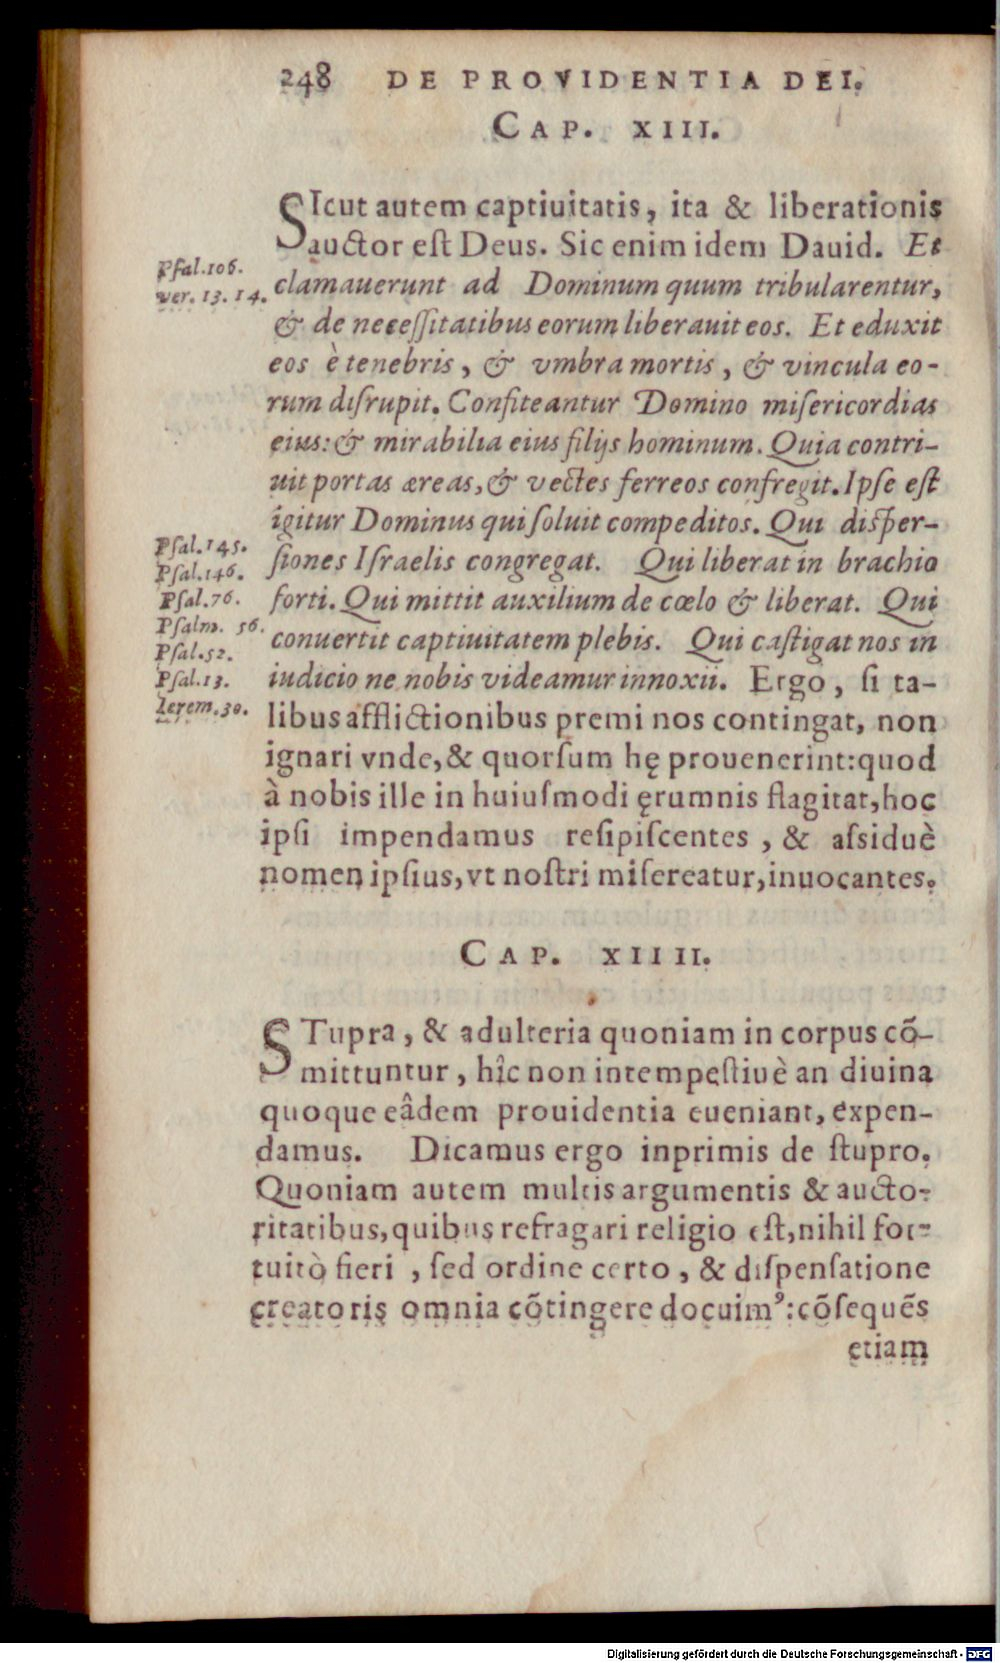 248 DE PROVIDENTIA DEI.
CAP. XIII.
SIcut autem captiuitatis, ita & liberationis
auctor eſt Deus. Sic enim idem Dauid. Et
Pſal.106.
ver. 13. 14.
clamauerunt ad Dominum quum tribularentur,
& de neceſſitatibus eorum liberauit eos. Et eduxit
eos è tenebris, & vmbra mortis, & vincula eo-
rum diſrupit. Confiteantur Domino miſericordias
eius: & mirabilia eius filijs hominum. Quia contri-
uit portas æreas, & vectes ferreos confregit. Ipſe eſt
igitur Dominus qui ſoluit compeditos. Qui diſper-
Pſal.145.
Pſal.146.
Pſal.76.
Pſalm. 56.
Pſal.52.
Pſal.13.
Ierem.30.
ſiones Iſraelis congregat. Qui liberat in brachio
forti. Qui mittit auxilium de cœlo & liberat. Qui
conuertit captiuitatem plebis. Qui caſtigat nos in
iudicio ne nobis videamur innoxii. Ergo, ſi ta-
libus afflictionibus premi nos contingat, non
ignari vnde, & quorſum hę prouenerint: quod
à nobis ille in huiuſmodi ęrumnis flagitat, hoc
ipſi impendamus reſipiſcentes, & aſsiduè
nomen ipſius, vt noſtri miſereatur, inuocantes.
CAP. XIIII.
STupra, & adulteria quoniam in corpus cõ-
mittuntur, hîc non intempeſtiuè an diuina
quoque eâdem prouidentia eueniant, expen-
damus. Dicamus ergo inprimis de ſtupro.
Quoniam autem multis argumentis & aucto-
ritatibus, quibus refragari religio eſt, nihil for-
tuitò fieri, ſed ordine certo, & diſpenſatione
creatoris omnia cõtingere docuimꝰ: cõſequẽs
etiam
Digitalisierung gefördert durch die Deutsche Forschungsgemeinschaft - DFG